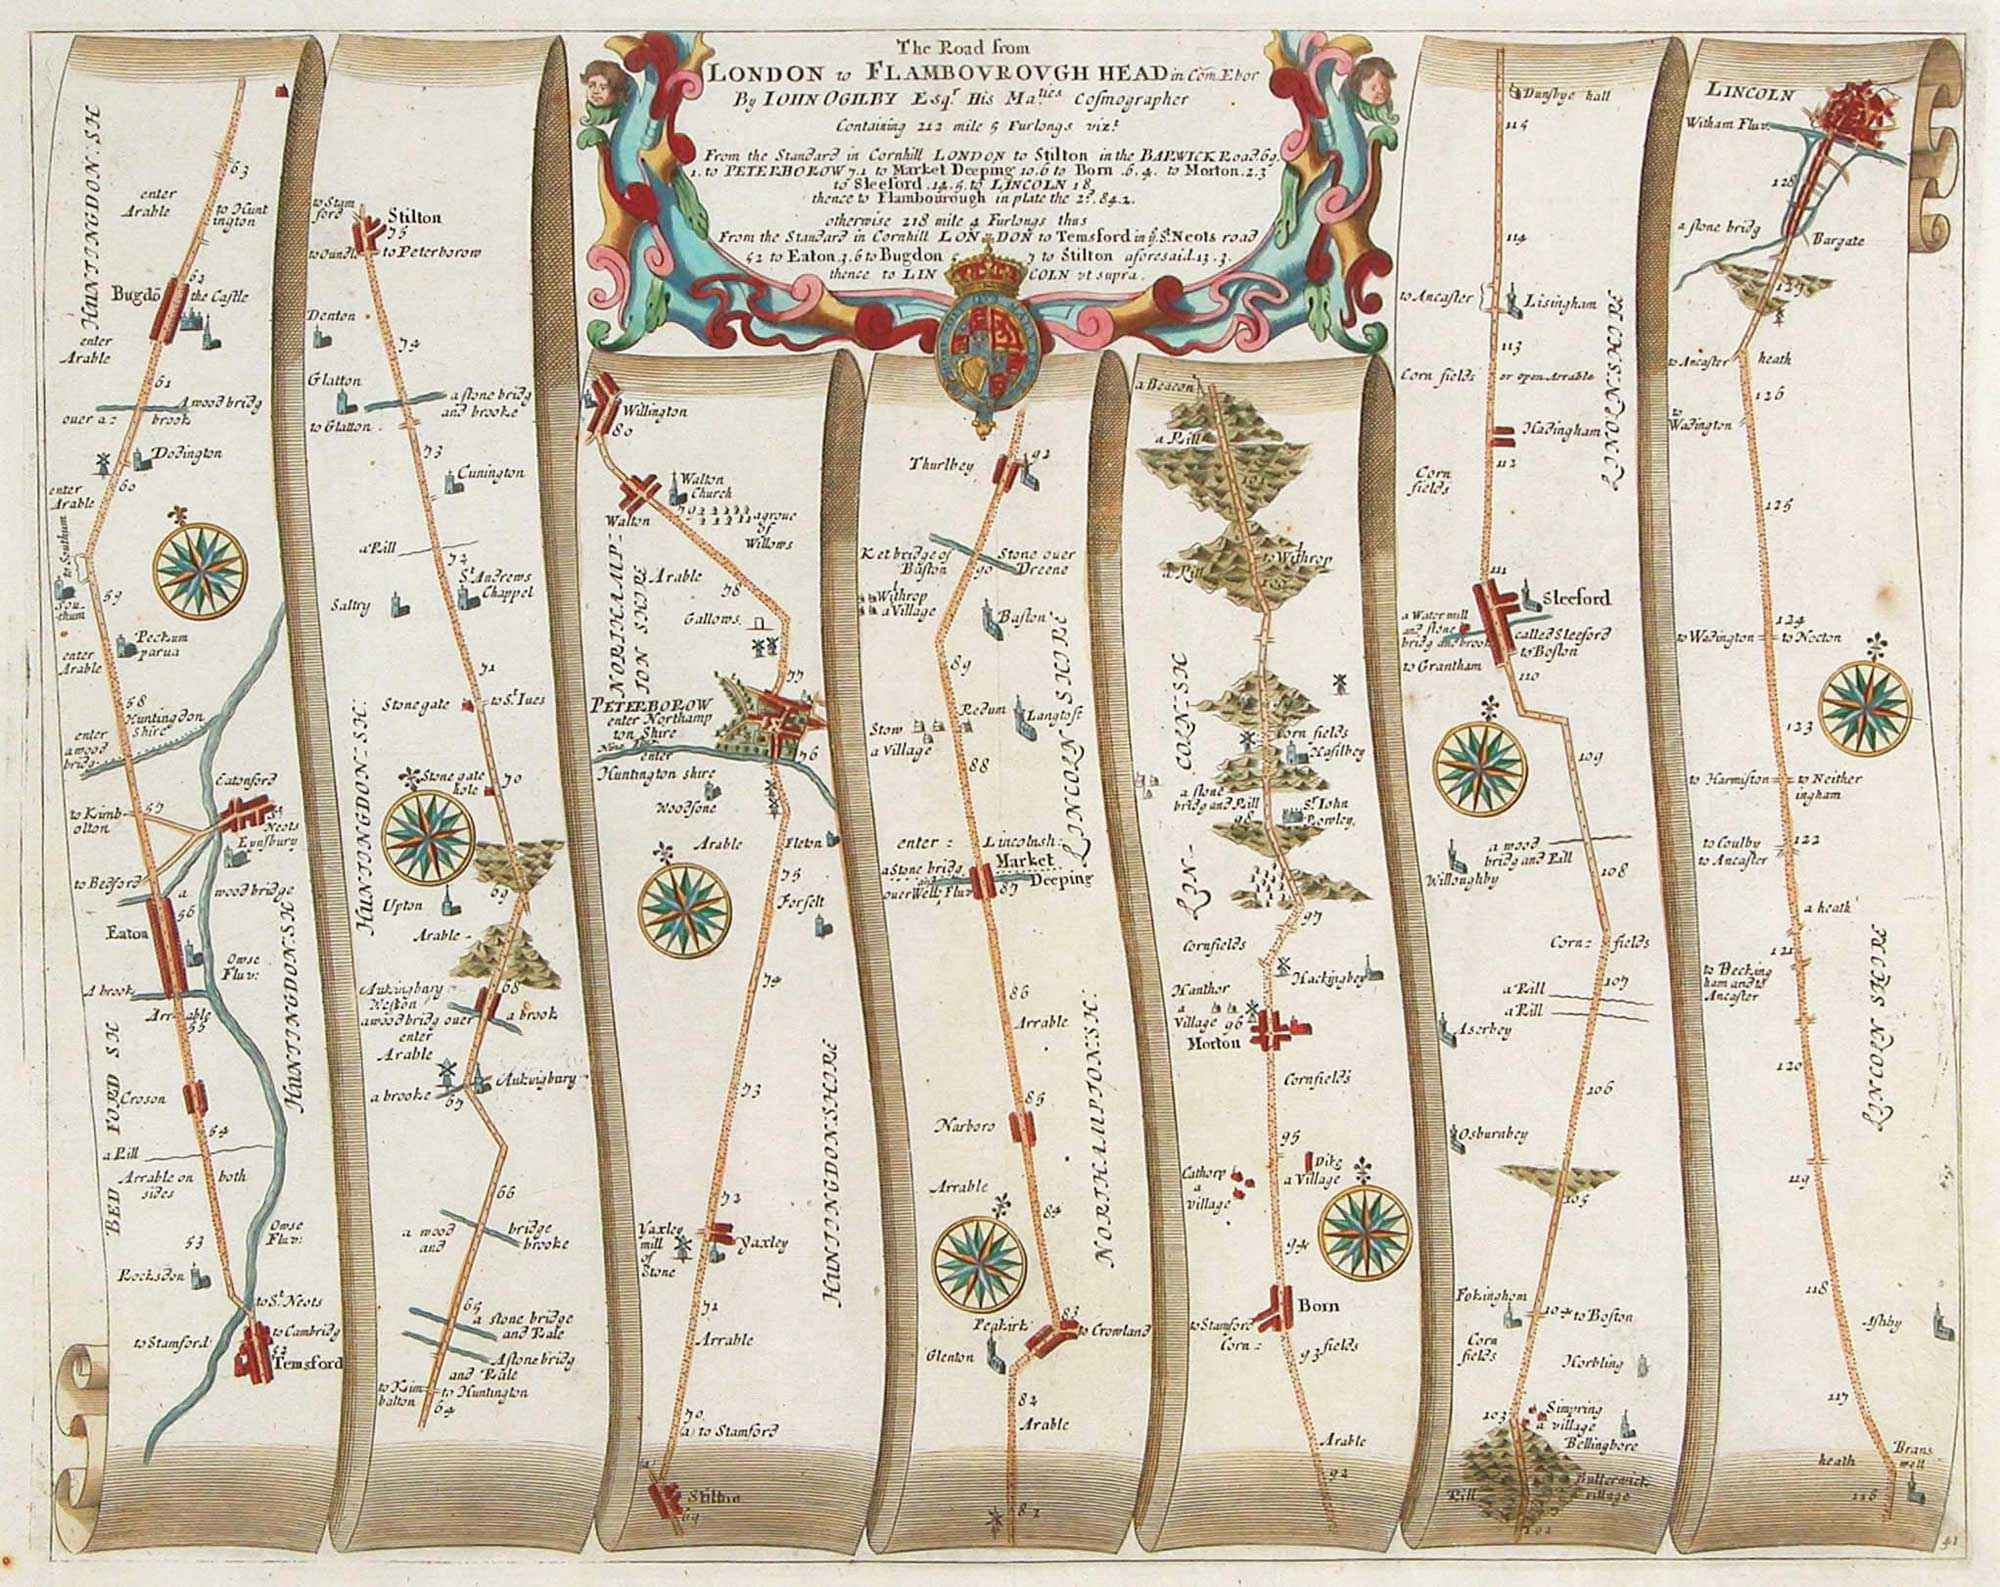 The Road from
LONDON to FLAMBOVROVGH HEAD in Com. Ebor
By IOHN OGILBY Esqr. His Maties Cosmographer
Containing 212 mile 5 Furlongs vizt.
From the Standard in Cornhill LONDON to Stilton in the BARWICK Road. 69.
1. to PETERBOROW 7.1 to Market Deeping 10.6 to Born .6.4. to Morton.2.3
to Sleeford .14.5. to LINCOLN 18
thence to Flambourough in plate the 2d. 84.2.
otherwise 218 mile 4 Furlongs thus
From the Standard in Cornhill LONDON to Temsford in ye. St. Neots road
52 to Eaton 3.6 to Bugdon 5 7 to Stilton aforesaid.13.3.
thence to LINCOLN vt supra.
HUNTINGDON. SH
63
enter
Arable
to Hunt
ington
62
Bugdō
the Castle
enter
Arable
61
A wood bridg
over a
brook
Dodington
60
enter
Arable
to Southum
59
Sou-
thum
Peckum
parua
enter
Arable
58
Huntingdon
shire
enter
a wood
bridg
Eatonford
to Kimb
olton
57
St
Neots
Eynsbury
to Bedford
a wood bridge
56
Eaton
HUNTINGDON. SH
Owse
Fluv:
A brook
Arrable
55
BED FORD SH
Croson
54
a Rill
Arrable on both
sides
53
Owse
Fluv:
Rocksdon
to St. Neots
to Stamford
to Cambridg
52
Temsford
to Stam
ford
Stilton
75
to Oundle
to Peterborow
Denton
74
Glatton
a stone bridg
and brooke
to Glatton
73
Cunington
a Rill
72
St. Andrews
Chappel
Saltry
71
Stonegate
to St. Iues
HUNTINGDON-SH:
Stonegate
hole
70
69
Upton
Arable
68
Aukingbury
Weston
a wood bridg over
a brook
enter
Arable
Aukingbury
a brooke
67
66
a wood bridge
and brooke
65
a stone bridge
and Rale
A stone bridg
and Rale
to Kim
balton
to Huntington
64
Willington
80
Walton
Church
79
a grove
of
Willows
Walton
NORTHAMP-
TON SHIRE
Arable
78
Gallows
77
PETERBOROW
enter Northamp
ton Shire
76
enter
Huntington shire
Woodsone
Arable
Fleton
75
Forselt
74
HUNTINGDON.SHIRE
73
72
Yaxley
mill
of
Stone
Yaxley
71
Arrable
70
to Stamford
Stilton
69
92
Thurlbey
Ket bridge of
Baston
Stone over
Dreene
90
Withrop
a Village
Baston
89
LINCOLN SHIRE
Redum
Stow
a Village
Langtoft
88
enter
Lincolnsh:
a Stone bridg
over Well: Fluv
Market
Deeping
87
86
Arrable
NORTHAMPTON.SH:
85
Narboro
Arrable
84
83
Peakirk
to Crowland
Glenton
82
Arable
81
a Beacon
a Rill
to Withrop
a Rill
100
LIN-COLN-SH
Corn fields
Hasilbey
a stone
bridg and Rill
98
St. Iohn
Rowley
97
Cornfields
Hackingbey
Hanthor
a
Village
96
Morton
Cornfields
95
Cathorp
a
village
Dike
a Village
94
Born
to Stamford
Corn fields
93
Arable
92
Dunsbye hall
115
114
to Ancaster
Lisingham
113
Corn fields or open Arrable
LINOLN.SHIRE
Hadingham
112
Corn
fields
111
Sleeford
a Water mill
and stone
bridg and brook
called Sleeford
to Boston
to Grantham
110
109
a wood
bridg and Rill
Willoughby
108
Corn fields
107
a Rill
a Rill
Aserbey
106
Osburnbey
105
Fokingham
104
to Boston
Corn
fields
Horbling
103
Simpring
a village
Bellingbore
Butterwick
village
Rill
102
LINCOLN
Witham Fluv.
128
a stone bridg
Bargate
127
to Ancaster
heath
126
to
Wadington
125
124
to Wadington
to Nocton
123
to Harmiston
to Neither
ingham
122
to Coulby
to Ancaster
a heath
121
to Becking
ham and to
Ancaster
LINCOLN SHIRE
120
119
118
Ashby
117
Brans
well
heath
116
41